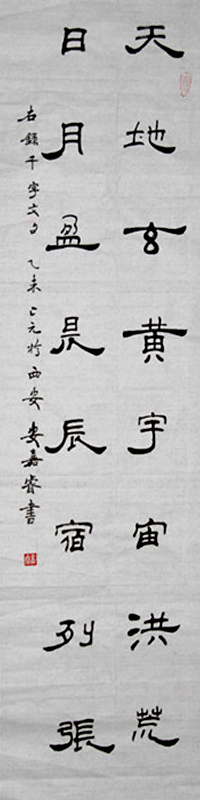 天地玄黃宇宙洪荒
日月盈昃辰宿列張
右錄千字文句乙未上元於西安安嘉睿書